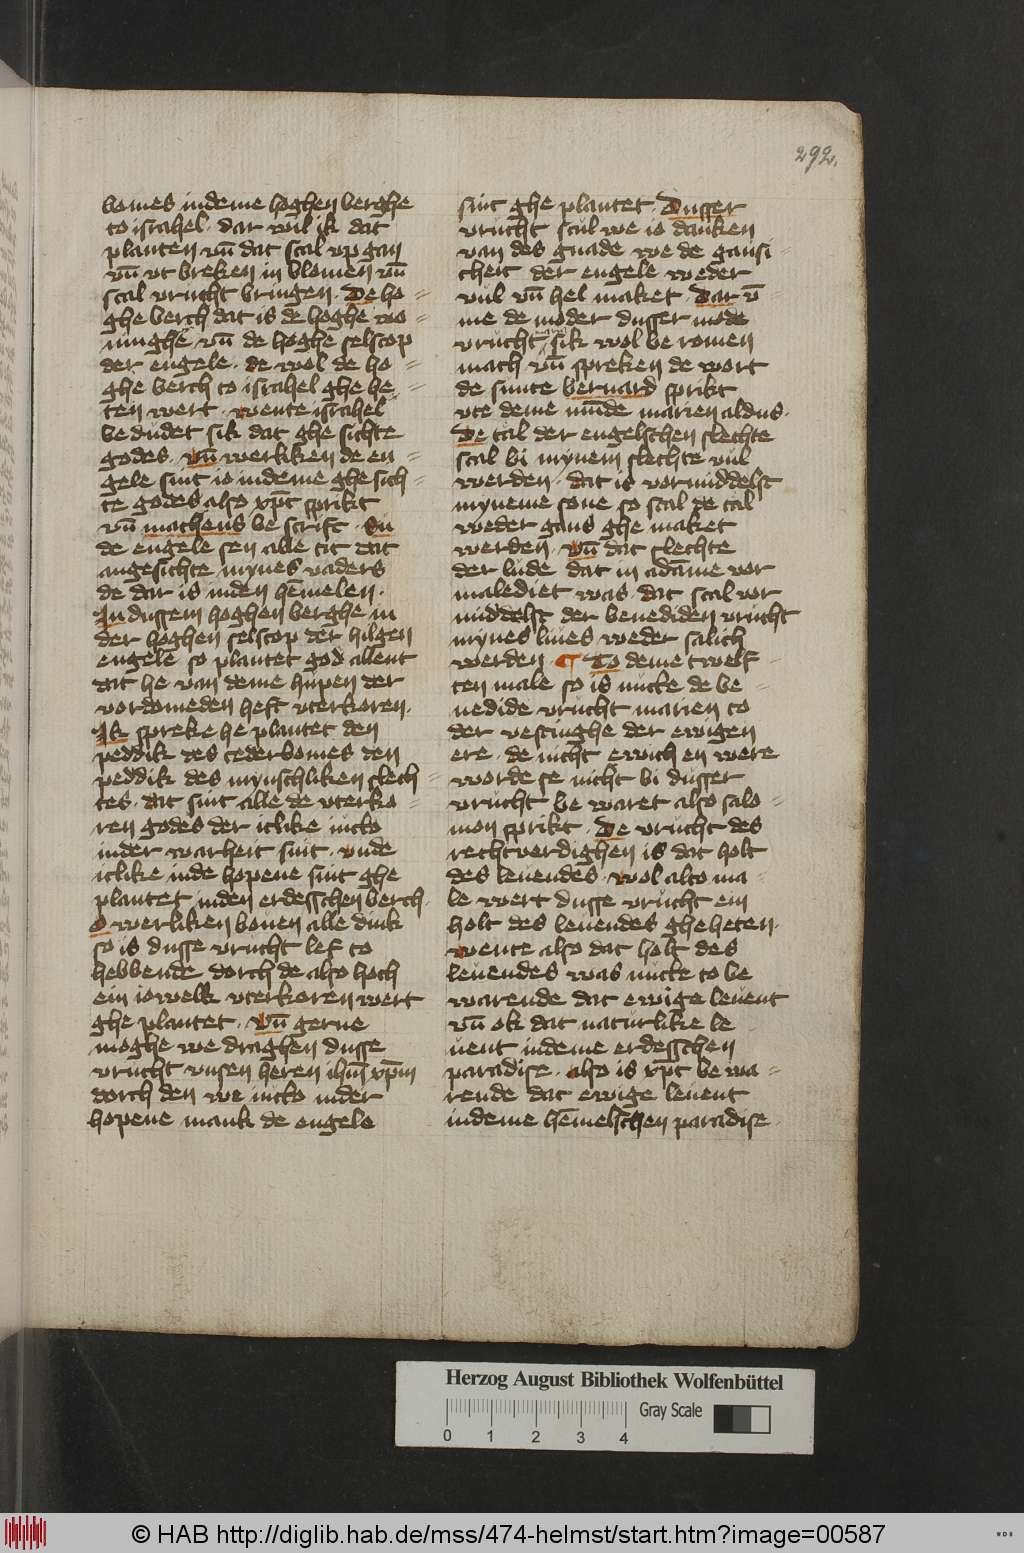 292.
bomes indeme hoghen berghe
to israhel · dar wil ik dat
planten vn̄ dat scal vp gan
vn̄ vt breken in blomen vn̄
scal vrucht bringen · De ho=
ghe berch dat is de hoghe wo=
ninghe vn̄ de hoghe selscop
der engele · de wol de ho=
ghe berch to israhel ghe he=
ten wert · wente israhel
bedudet sik dat ghe sichte
godes · vn̄ werliken de en=
gele sint io indeme ghe sich=
te godes also xp̄c sprikt
vn̄ matheus be scrift ·
de engele sen alle tit dat
angesichte mynes vaders
de dar is inden hēmelen ·
In dussem hoghen berghe in
der hoghen selscop der hilgen
engele so plantet god allent
dat he van deme hupen der
vordomeden heft vterkoren ·
Ik spreke he plantet den
peddik des cederbomes den
peddik des mynschliken slech=
tes · dat sint alle de vterko=
ren godes der itlike nicko
inder warheit sint · vnde
itlike inde hopene sint ghe
plantet inden erdesschen berch ·
O werliken bouen alle dink
so is dusse vrucht lef to
hebbende dorch de also hoch
ein iowelk vterkoren wert
ghe plantet · vn̄ gerne
moghe we draghen dusse
vrucht vnsen heren ihm̄ xp̄m
dorch den we nicko inder
hopene mank de engele
sint ghe plantet · Dusser
vrucht scul we io danken
van des gnade we de gansi=
cheit der engele weder
vul vn̄ hel maket · Dar v̄
me de moder dusser mode
vrucht sik wol be romen
mach vn̄ spreken de wort
de sunte bernard sprikt
vte deme mūde marien aldus ·
De tal der engelschen slechte
scal bi mynem slechte vul
werden · dat is vormiddelst
myneme sone so scal de tal
weder gans ghe maket
werden · vn̄ dat slechte
der lude dat in adāme vor
malediet was · dat scal vor
middelst der benediden vrucht
mynes liues weder salich
werden · ¶ To deme twelf=
ten male so is nutte de be=
nedide vrucht marien to
der vestinghe der ewigen
ere · de nicht ewich en were
worde se nicht bi dusser
vrucht be waret also salo=
mon sprikt · De vrucht des
rechtverdighen is dat holt
des leuendes · wol alto ma=
le wert dusse vrucht ein
holt des leuendes gheheten ·
wente also dat holt des
leuendes was nutte to be
warende dat ewige leuent
vn̄ ok dat naturlike le
uent indeme erdesschen
paradise · also is xp̄c be wa=
rende dat ewige leuent
indeme hēmelschen paradise ·
Herzog August Bibliothek Wolfenbüttel
Gray Scale
0 1 2 3 4
© HAB http://diglib.hab.de/mss/474-helmst/start.htm?image=00587